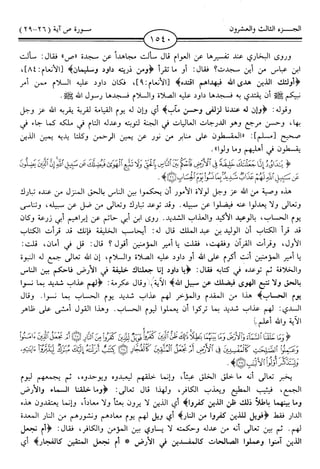 الجــزء الثالث والعشرون
سورة ص آية (٢٦-٢٩)
١٥٤٠
وروى البخاري عند تفسيرها عن العوام قال سألت مجاهداً عن سجدة «ص» فقال: سألت
ابن عباس من أين سجدت؟ فقال: أو ما تقرأ ﴿ومن ذريته داود وسليمان﴾ [الأنعام: ٨٤]،
﴿أولئك الذين هدى الله فبهداهم اقتده﴾ [الأنعام: ٩٠]، فكان داود عليه السلام ممن أمر
نبيكم ﷺ أن يقتدي به فسجدها داود عليه الصلاة والسلام فسجدها رسول الله ﷺ.
وقوله: ﴿وإن له عندنا لزلفى وحسن مآب﴾ أي وإن له يوم القيامة لقربة يقربه الله عز وجل
بها، وحسن مرجع وهو الدرجات العاليات في الجنة لتوبته وعدله التام في ملكه كما جاء في
صحيح [مسلم]: «المقسطون على منابر من نور عن يمين الرحمن وكلتا يديه يمين الذين
يقسطون في أهليهم وما ولوا».
﴿يَا دَاوُودُ إِنَّا جَعَلْنَاكَ خَلِيفَةً فِي الْأَرْضِ فَاحْكُم بَيْنَ النَّاسِ بِالْحَقِّ وَلَا تَتَّبِعِ الْهَوَى فَيُضِلَّكَ عَن سَبِيلِ اللَّهِ إِنَّ
الَّذِينَ يَضِلُّونَ عَن سَبِيلِ اللَّهِ لَهُمْ عَذَابٌ شَدِيدٌ بِمَا نَسُوا يَوْمَ الْحِسَابِ﴾.
هذه وصية من الله عز وجل لولاة الأمور أن يحكموا بين الناس بالحق المنزل من عنده تبارك
وتعالى ولا يعدلوا عنه فيضلوا عن سبيله. وقد توعد تبارك وتعالى من ضل عن سبيله، وتناسى
يوم الحساب، بالوعيد الأكيد والعذاب الشديد. روى ابن أبي حاتم عن إبراهيم أبي زرعة وكان
قد قرأ الكتاب أن الوليد بن عبد الملك قال له: أيحاسب الخليفة فإنك قد قرأت الكتاب
الأول، وقرأت القرآن وفقهت، فقلت يا أمير المؤمنين أقول؟ قال: قل في أمان، قلت:
يا أمير المؤمنين أنت أكرم على الله أو داود عليه الصلاة والسلام، إن الله تعالى جمع له النبوة
والخلافة ثم توعده في كتابه فقال: ﴿يا داود إنا جعلناك خليفة في الأرض فاحكم بين الناس
بالحق ولا تتبع الهوى فيضلك عن سبيل الله﴾ الآية. وقال عكرمة: ﴿لهم عذاب شديد بما نسوا
يوم الحساب﴾ هذا من المقدم والمؤخر لهم عذاب شديد يوم الحساب بما نسوا. وقال
السدي: لهم عذاب شديد بما تركوا أن يعملوا ليوم الحساب. وهذا القول أمشى على ظاهر
الآية والله أعلم.
﴿وَمَا خَلَقْنَا السَّمَاءَ وَالْأَرْضَ وَمَا بَيْنَهُمَا بَاطِلًا ذَلِكَ ظَنُّ الَّذِينَ كَفَرُوا فَوَيْلٌ لِّلَّذِينَ كَفَرُوا مِنَ النَّارِ أَمْ نَجْعَلُ الَّذِينَ آمَنُوا
وَعَمِلُوا الصَّالِحَاتِ كَالْمُفْسِدِينَ فِي الْأَرْضِ أَمْ نَجْعَلُ الْمُتَّقِينَ كَالْفُجَّارِ كِتَابٌ أَنزَلْنَاهُ إِلَيْكَ مُبَارَكٌ لِّيَدَّبَّرُوا آيَاتِهِ وَلِيَتَذَكَّرَ
أُولُو الْأَلْبَابِ﴾.
يخبر تعالى أنه ما خلق الخلق عبثاً، وإنما خلقهم ليعبدوه ويوحدوه، ثم يجمعهم ليوم
الجمع، فيثيب المطيع ويعذب الكافر، ولهذا قال تعالى: ﴿وما خلقنا السماء والأرض
وما بينهما باطلاً ذلك ظن الذين كفروا﴾ أي الذين لا يرون بعثاً ولا معاداً، وإنما يعتقدون هذه
الدار فقط ﴿فويل للذين كفروا من النار﴾ أي ويل لهم يوم معادهم ونشورهم من النار المعدة
لهم. ثم بين تعالى أنه من عدله وحكمته لا يساوي بين المؤمن والكافر، فقال: ﴿أم نجعل
الذين آمنوا وعملوا الصالحات كالمفسدين في الأرض * أم نجعل المتقين كالفجار﴾ أي